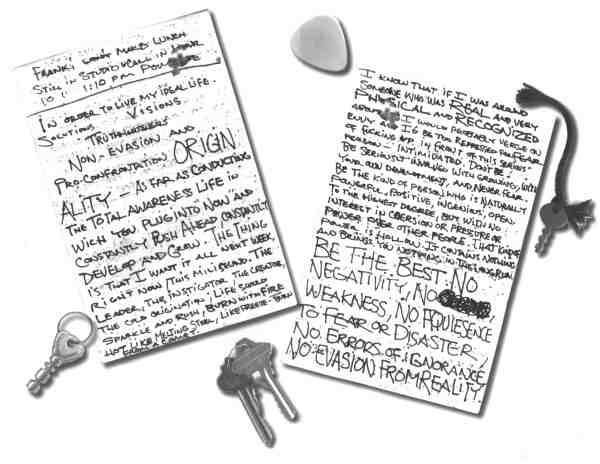 FRANK: CAN'T MAKE LUNCH
STILL IN STUDIO CALL IN HOUR
1:10 P.M.
IN ORDER TO LIVE MY IDEAL LIFE.
SOLUTIONS VISIONS
TRUTHFULNESS
NON-EVASION AND
PRO-CONFRONTATION ORIGIN
ALITY - AS FAR AS CONDUCTING
THE TOTAL AWARENESS LIFE IN
WICH YOU PLUG INTO NOW AND
CONSTANTLY PUSH AHEAD CONSTANTLY
DEVELOP AND GROW. THE THING
IS THAT I WANT IT ALL NEXT WEEK,
RIGHT NOW THIS MILISECOND. THE
LEADER, THE INSTIGATOR THE CREATOR,
THE COLD ORIGINATION, LIFE SHOULD
SPARKLE AND RUSH, BURN WITH FIRE
HOT LIKE MELTING STEEL, LIKE FREEZE-BURN
I KNOW THAT IF I WAS AROUND
SOMEONE WHO WAS REAL AND VERY
PHYSICAL AND RECOGNIZED
I WOULD PROBABLY VERGE ON
ENVY AND I'D BE TOO REPRESSED FOR FEAR
OF FUCKING UP IN FRONT OF THIS SERIOUS
PERSON - INTIMIDATED. DON'T BE!
BE SERIOUSLY INVOLVED WITH GROWING, WITH
YOUR OWN DEVELOPMENT, AND NEVER FEAR.
BE THE KIND OF PERSON WHO IS NATURALLY
POWERFUL, POSITIVE, INGENIOUS, OPEN
TO THE HIGHEST DEGREE, BUT WITH NO
INTEREST IN COERSION OR PRESSURE OR
POWER OVER OTHER PEOPLE. THAT KIND OF
POWER IS HALLOW. IT CONTAINS NOTHING
AND BRINGS YOU NOTHING IN THE LONG RUN.
BE THE BEST, NO
NEGATIVITY, NO
WEAKNESS, NO AQUIESENCE
TO FEAR OR DISASTER,
NO ERRORS OF IGNORANCE,
NO EVASION FROM REALITY.